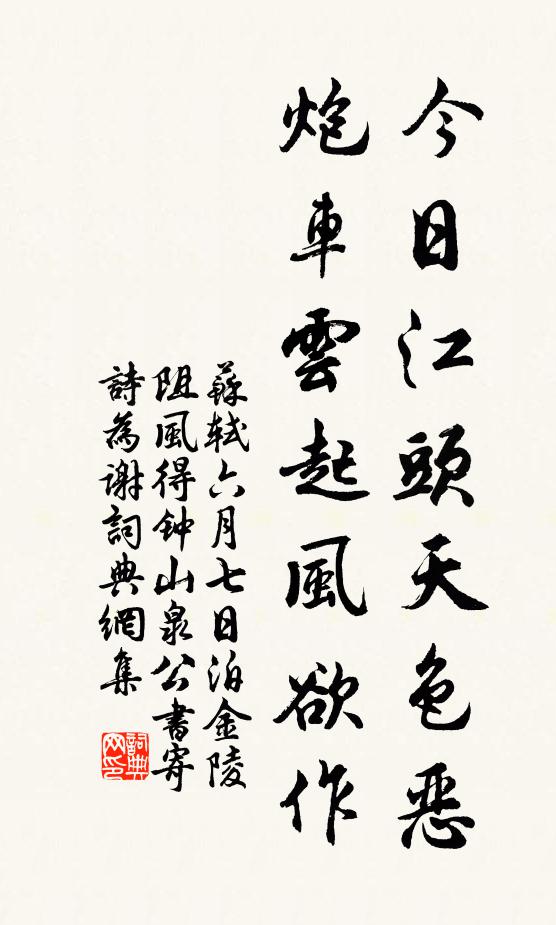 今日江頭天色惡
炮車雲起風欲作
蘇軾六月七日泊金陵
阻風得钟山泉公書寄
詩為谢詞典網集
詞典网印